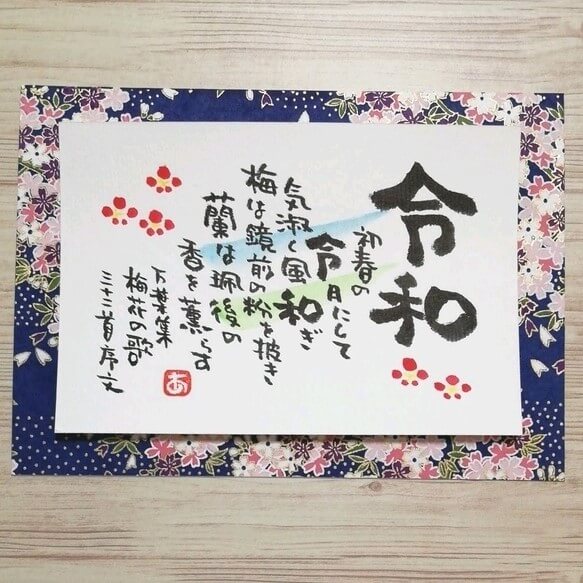 令和
初春の
令月にして
気淑く風和ぎ
梅は鏡前の粉を披き
蘭は珮後の
香を薫らす
万葉集
梅花の歌
三十二首序文
あ